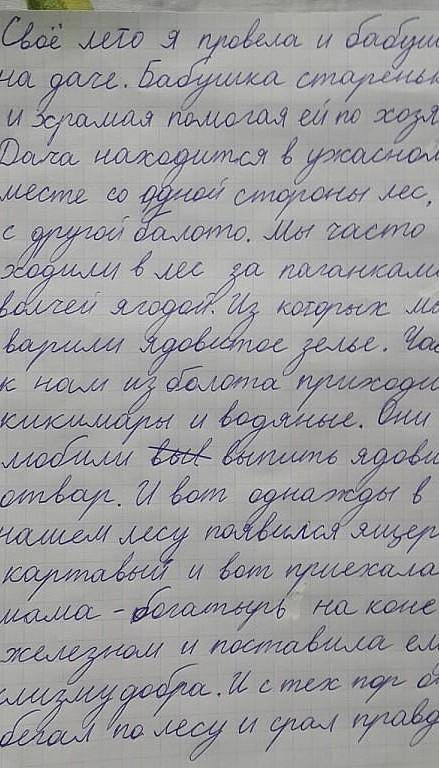 Своё лето я провела и бабуш
на даче. Бабушка стареньк
и храмая помогая ей по хозя
Дача находится в ужасном
месте со одной стороны лес,
с другой балото. Мы часто
ходили в лес за паганками
волчей ягодой. Из которых мы
варили ядовитое зелье. Час
к нам из болота приходи
кикимары и водяные. Они
любили выпить ядови
отвар. И вот однажды в
нашем лесу появился ящер
картавый и вот приехала
мама - богатырь на коне
железном и поставила ем
слизму добра. И с тех пор о
бегал по лесу и срал правд